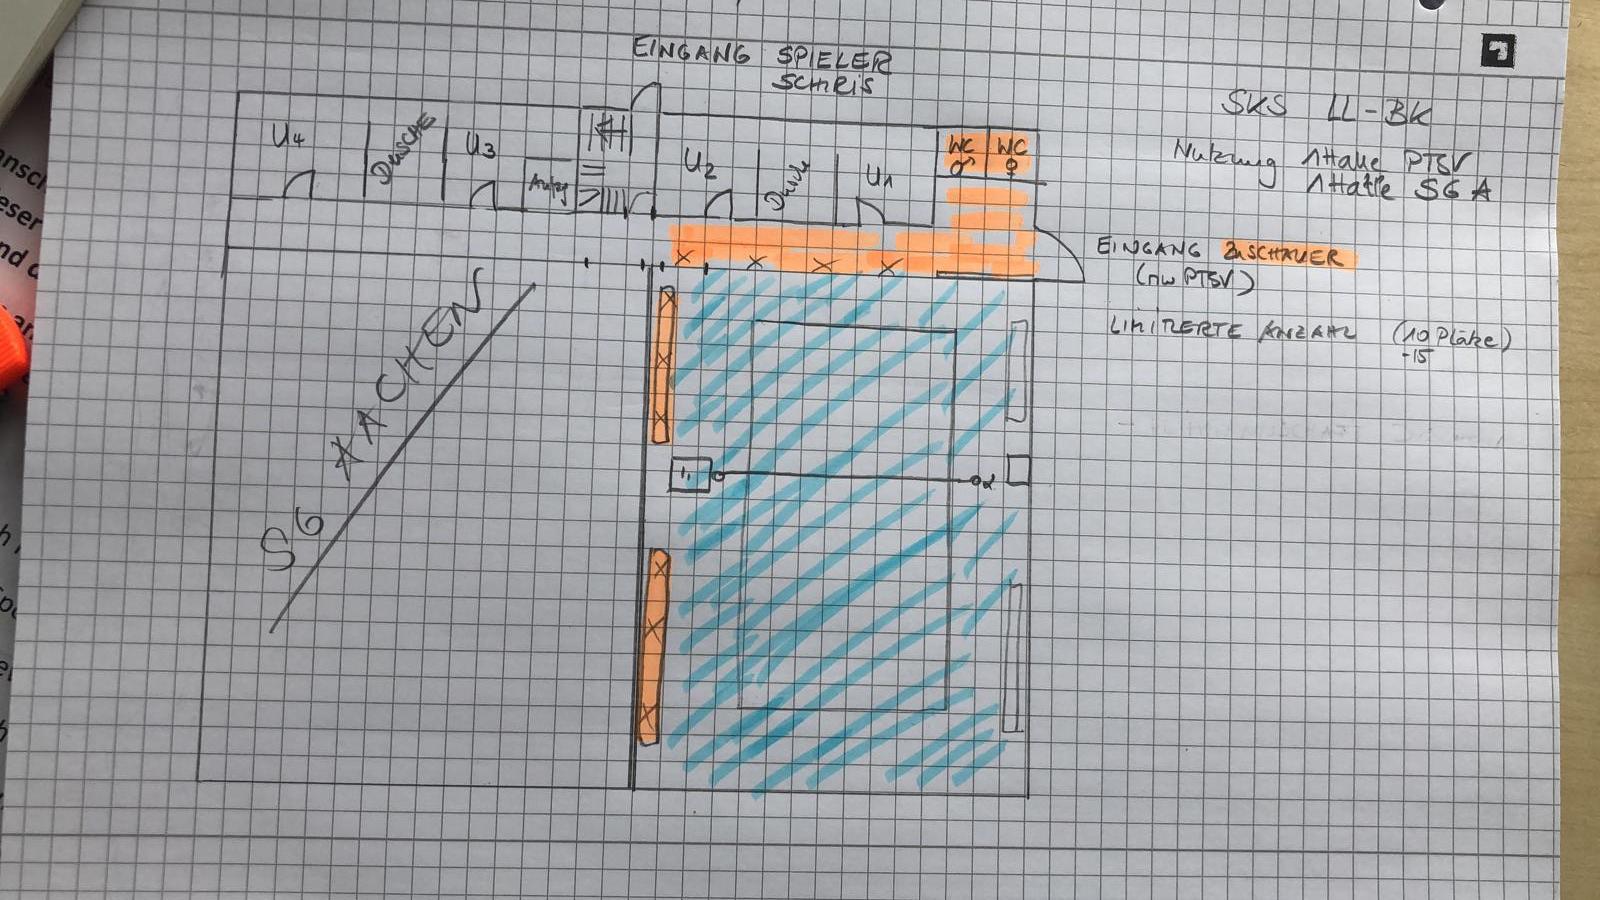 EINGANG SPIELER
SCHIRIS
SKS LL-BK
Nutzung 1 Halle PTSV
1 Halle SG A
U4
DUSCHE
U3
U2
Dusche
U1
WC ♂
WC ♀
EINGANG ZUSCHAUER
(nur PTSV)
LIMITIERTE ANZAHL (10 Plätze)
-15
SG AACHEN